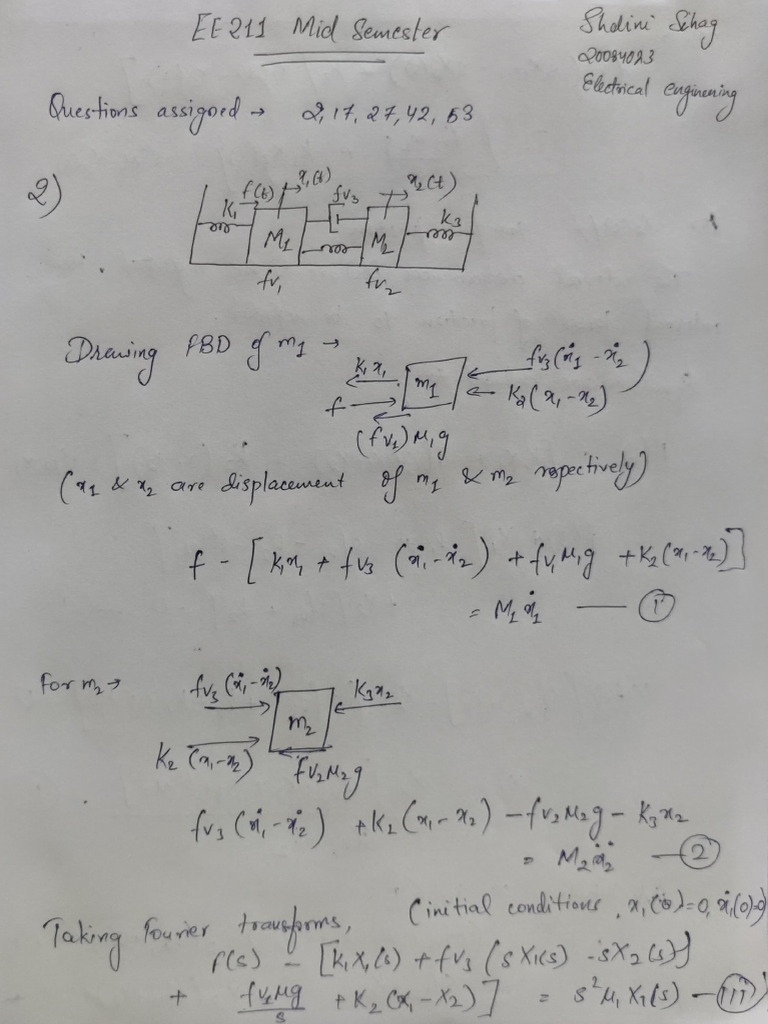 EE211 Mid Semester
Sholini Sihag
20084023
Electrical enginering
Questions assigned → 2, 17, 27, 42, 53
2)
K₁ f(t) x₁(t) fv₃ x₂(t) K₃
M₁ M₂
fv₁ fv₂
Drawing FBD of m₁ →
K₁x₁ m₁ fv₃(ẋ₁ - ẋ₂)
f K₂(x₁ - x₂)
(fv₁) M₁g
(x₁ & x₂ are displacement of m₁ & m₂ respectively)
f - [K₁x₁ + fv₃ (ẋ₁ - ẋ₂) + fv₁M₁g + K₂(x₁-x₂)]
= M₁ẍ₁ — ①
For m₂ →
fv₃(ẋ₁-ẋ₂) m₂ K₃x₂
K₂(x₁-x₂) fv₂M₂g
fv₃(ẋ₁-ẋ₂) + K₂(x₁-x₂) - fv₂M₂g - K₃x₂
= M₂ẍ₂ — ②
Taking Fourier transforms, (initial conditions, x₁(0)=0, ẋ₁(0)=0)
F(s) - [K₁X₁(s) + fv₃(sX₁(s) - sX₂(s))
+ fv₁Mg/s + K₂(X₁-X₂)] = s²M₁X₁(s) — (iii)